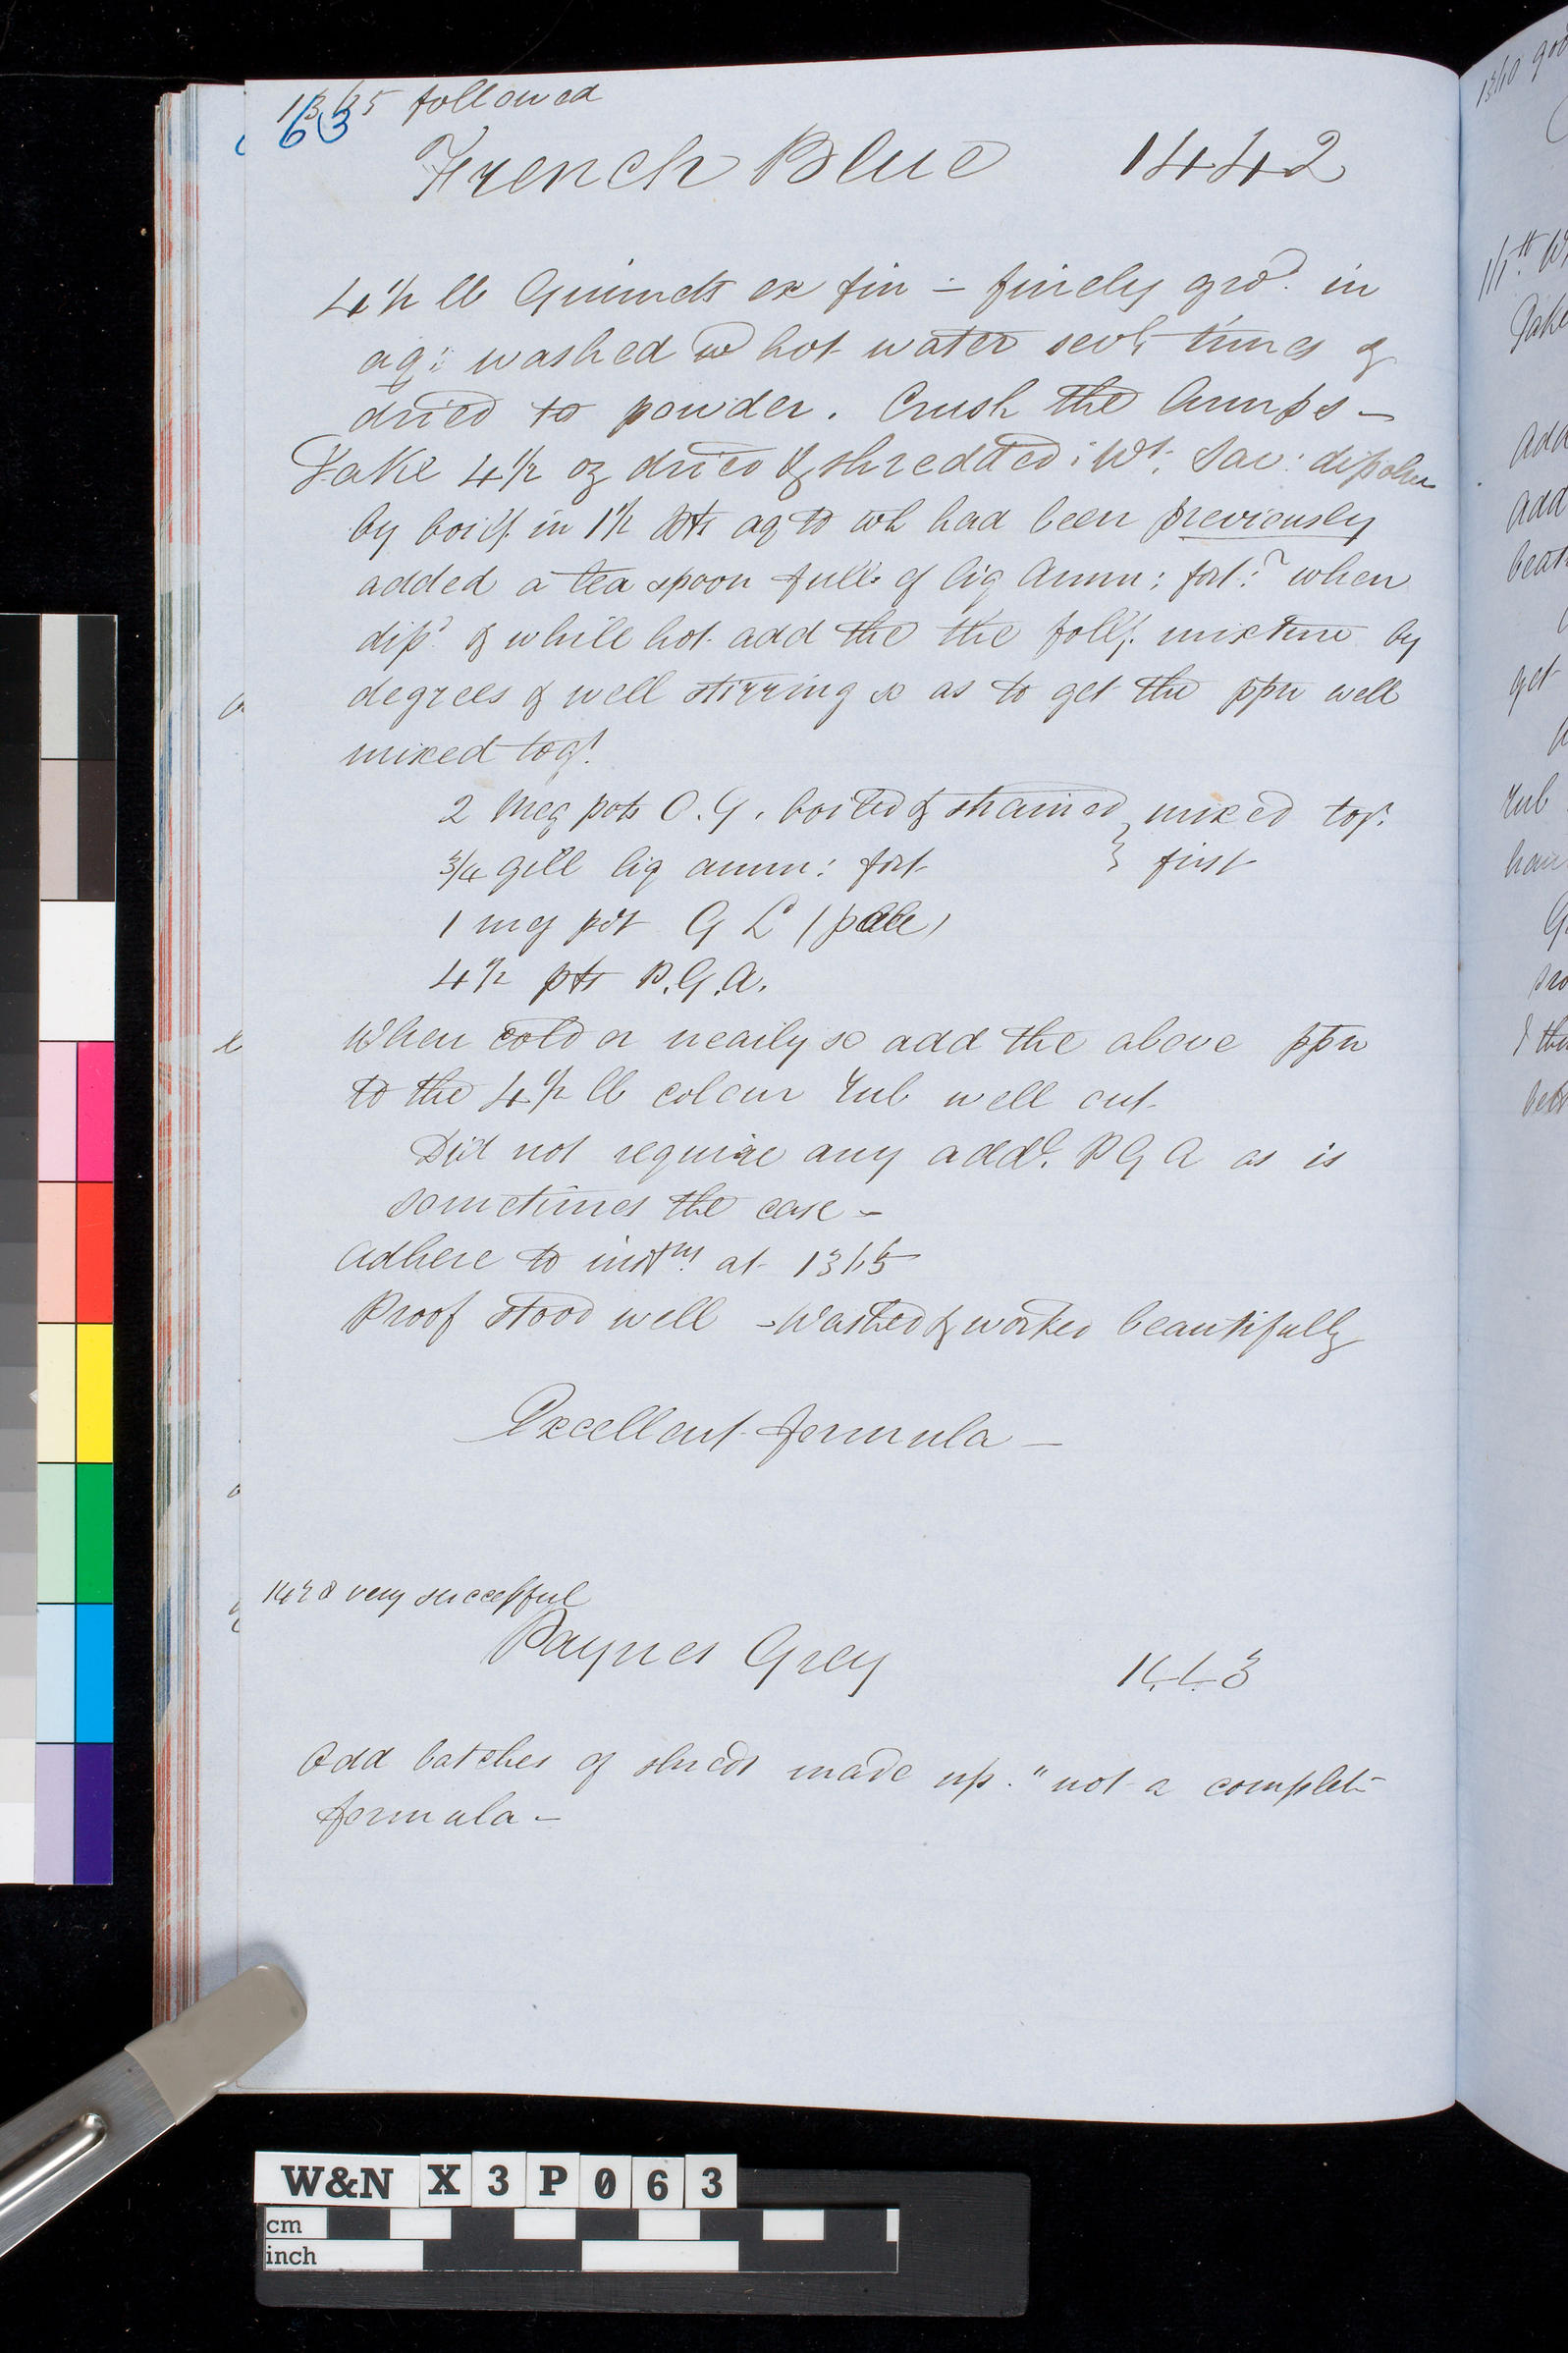 1365 followed
63
French Blue 1442
4 1/2 lb Guimets ex fin - finely grd. in
aq: washed w hot water sevl. times &
dried to powder. Crush the lumps -
Take 4 1/2 oz dried & shredded: Wt. Sav: dissolve
by boilg. in 1 1/2 pts aq to wh had been previously
added a tea spoon full of liq Amm: fort: when
dissd & while hot add the the follg. mixture by
degrees & well stirring so as to get the ppn well
mixed togr.
2 Meg pots O.G. boiled & strained } mixed togr.
3/4 gill liq amm: fort } first
1 meg pot G L (pale)
4 1/2 pts P.G.A.
When cold or nearly so add the above ppn
to the 4 1/2 lb colour Rub well out.
Did not require any addl. P G A as is
sometimes the case -
Adhere to instns. at 1365
Proof stood well - Washed & worked beautifully
Excellent formula -
1428 very successful
Paynes Grey 1443
Odd batches of shreds made up. " not a complete
formula -
W&N X 3 P 0 6 3
cm
inch